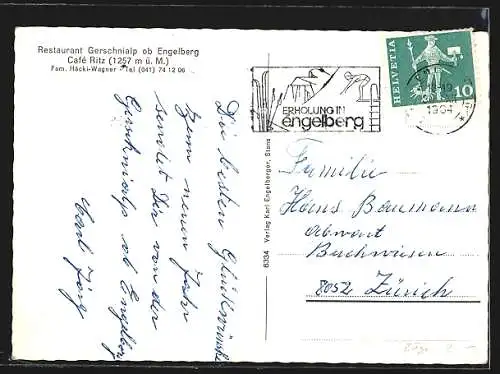 Restaurant Gerschnialp ob Engelberg
Café Ritz (1257 m ü. M.)
Fam. Häcki-Wagner - Tel (041) 74 12 06
ERHOLUNG IN
engelberg
HELVETIA
10
Die besten Glückwünsche
zum neuen Jahr
sendet Dir von der
Gerschnialp ob Engelberg
6334 Verlag Karl Engelberger, Stans
Familie
Hans Baumann
Abwart
Buchwiesen
8052 Zürich